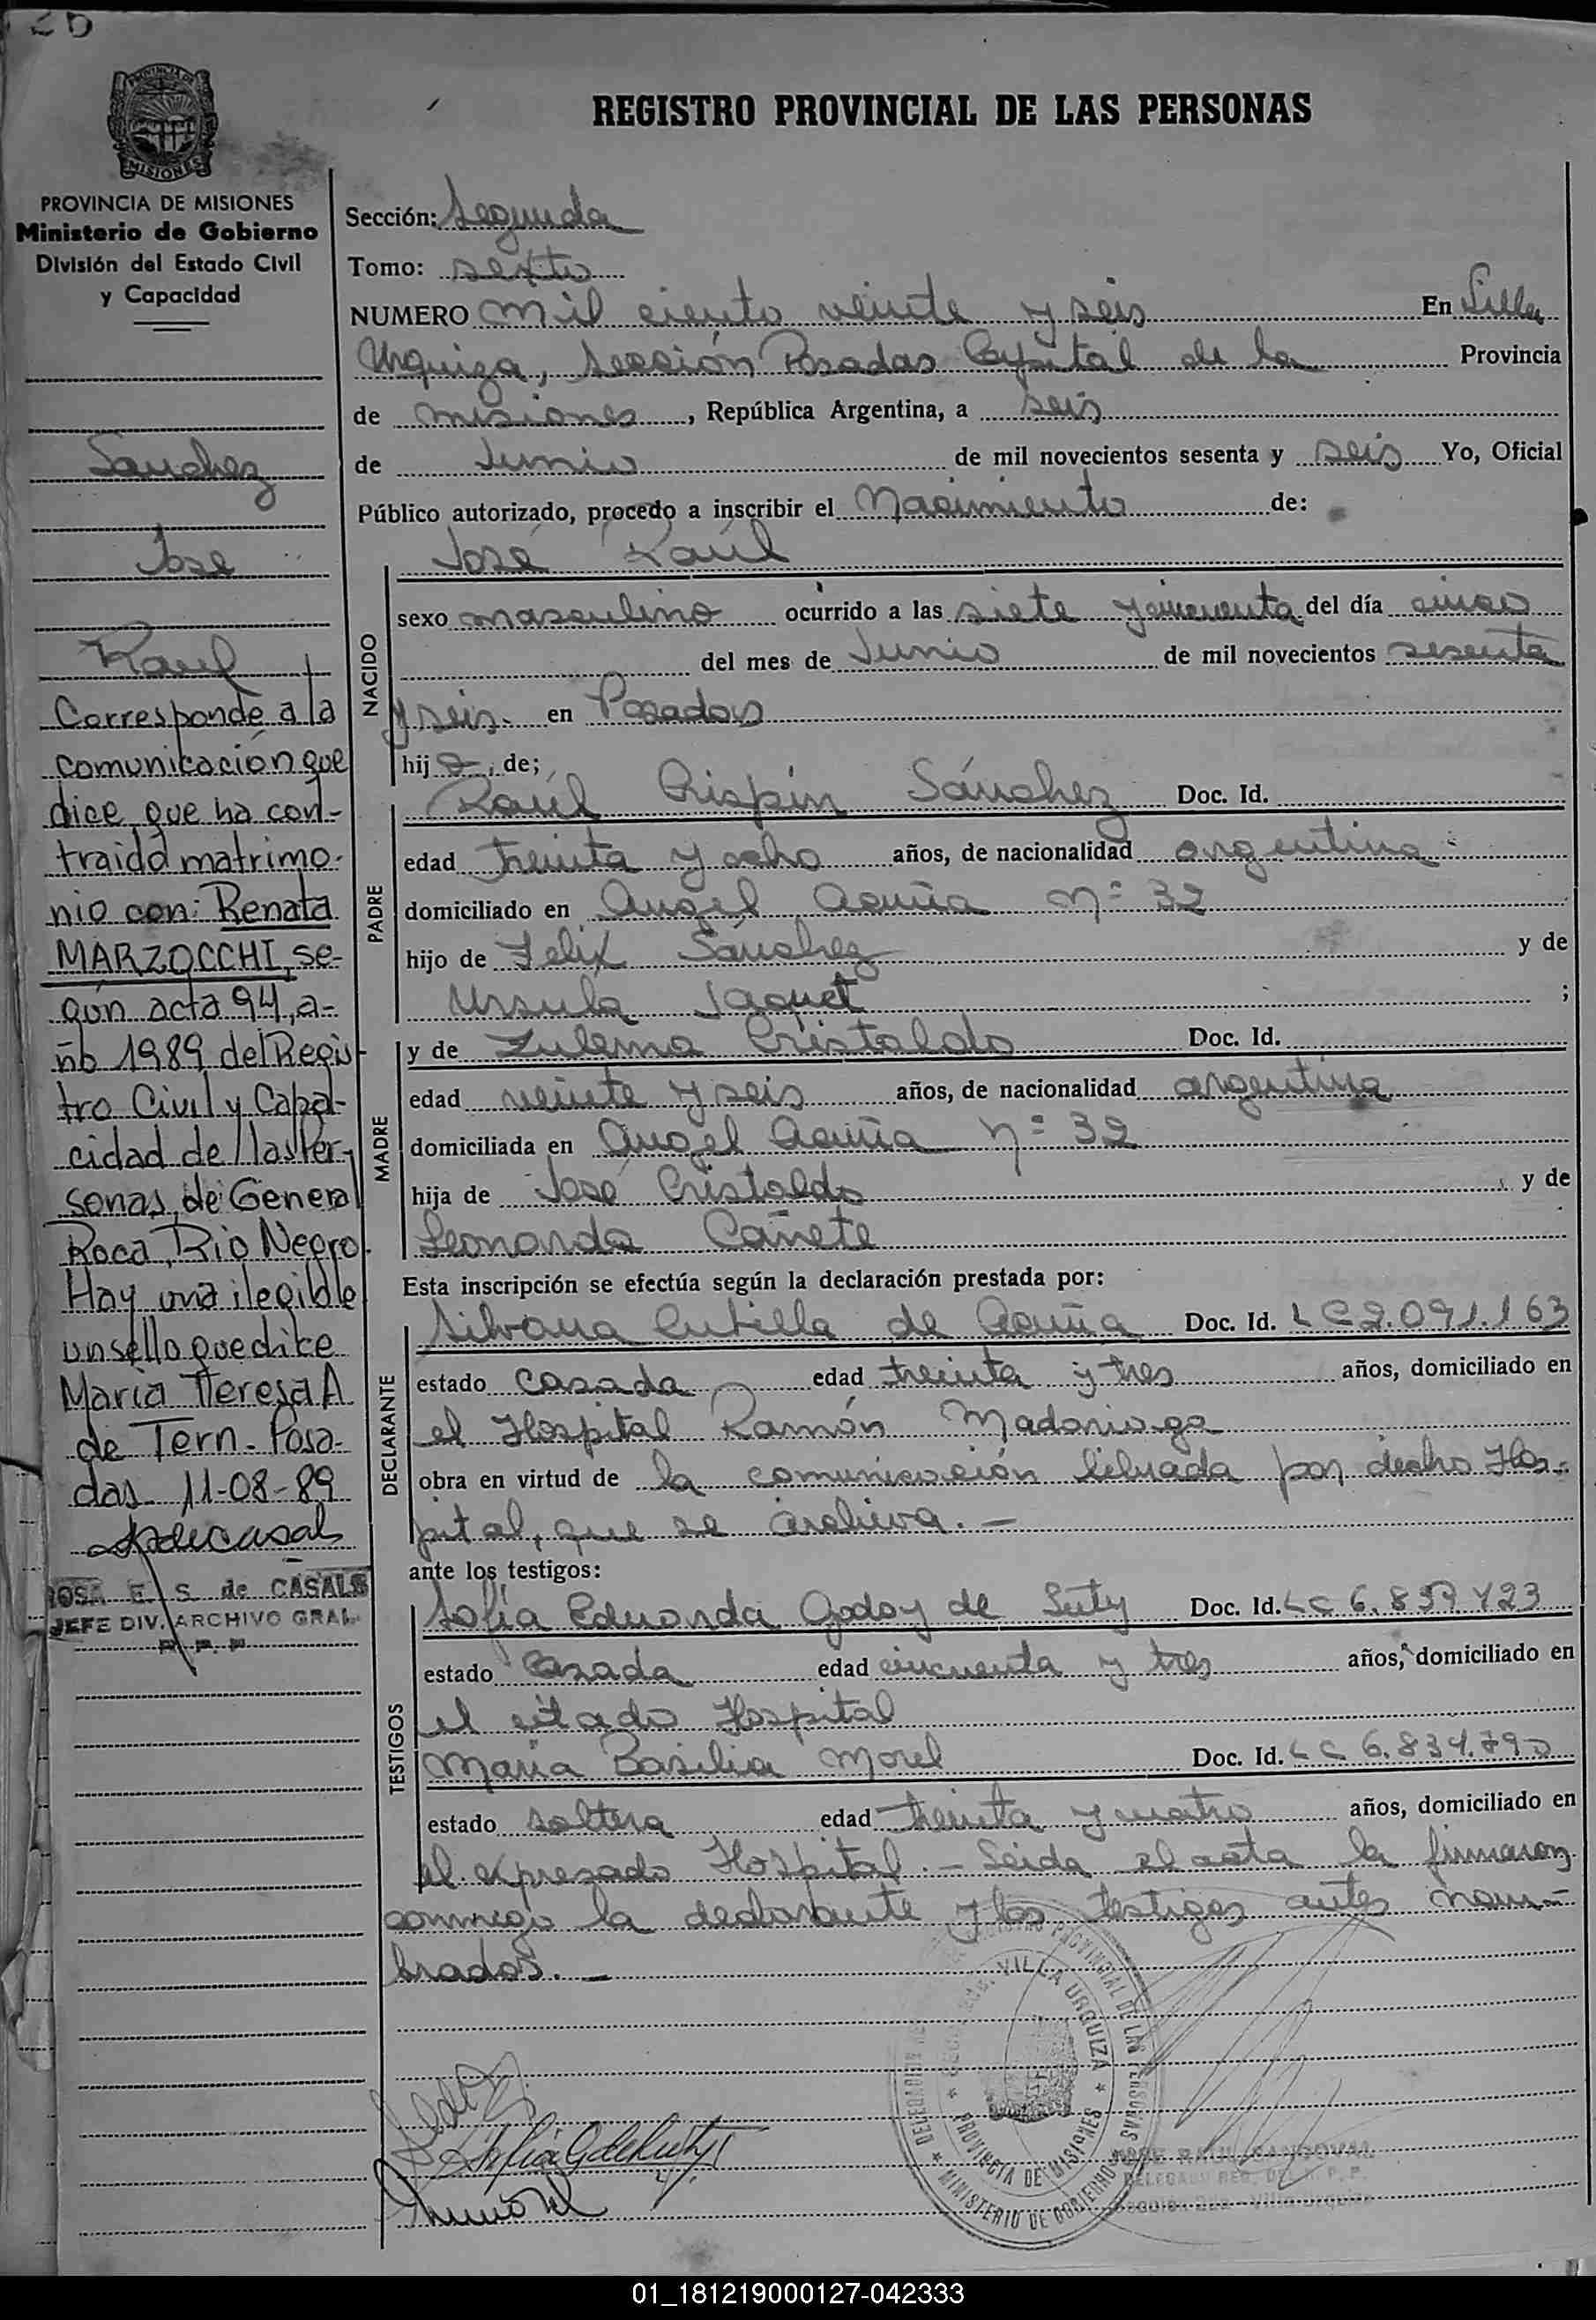 PROVINCIA DE
MISIONES
PROVINCIA DE MISIONES
Ministerio de Gobierno
División del Estado Civil
y Capacidad
Sanchez
Jose
Raul
Corresponde a la
comunicación que
dice que ha con-
traido matrimo-
nio con: Renata
MARZOCCHI, se-
gún acta 94, a-
ño 1989 del Regis-
tro Civil y Capa-
cidad de las Per-
sonas, de General
Roca, Rio Negro.
Hay una ilegible
un sello que dice
Maria Teresa A
de Tern. Posa-
das 11-08-89
ROSA E. S. de CASALS
JEFE DIV. ARCHIVO GRAL.
R. P. P.
REGISTRO PROVINCIAL DE LAS PERSONAS
Sección: Segunda
Tomo: sexto
NUMERO mil ciento veinte y seis En Villa
Urquiza, Sección Posadas Capital de la Provincia
de misiones, República Argentina, a seis
de Junio de mil novecientos sesenta y seis Yo, Oficial
Público autorizado, procedo a inscribir el Nacimiento de:
José Raúl
NACIDO
sexo masculino ocurrido a las siete y cincuenta del día cinco
del mes de Junio de mil novecientos sesenta
y seis. en Posadas
hijo, de;
PADRE
Raúl Crispín Sánchez Doc. Id.
edad treinta y ocho años, de nacionalidad argentina
domiciliado en Angel Acuña Nº 32
hijo de Felix Sánchez y de
Ursula Jaquet ;
MADRE
y de Zulema Cristaldo Doc. Id.
edad veinte y seis años, de nacionalidad argentina
domiciliada en Angel Acuña Nº 32
hija de José Cristaldo y de
Leonarda Cañete
Esta inscripción se efectúa según la declaración prestada por:
DECLARANTE
Silvana Cubilla de Acuña Doc. Id. LC 2.091.163
estado casada edad treinta y tres años, domiciliado en
el Hospital Ramón Madariaga
obra en virtud de la comunicación librada por dicho Hos-
pital, que se archiva.-
ante los testigos:
TESTIGOS
Sofía Eduarda Godoy de Doc. Id. LC 6.839.423
estado Casada edad cincuenta y tres años, domiciliado en
el citado Hospital
María Basilia Morel Doc. Id. LC 6.834.790
estado soltera edad treinta y cuatro años, domiciliado en
el expresado Hospital.- Leida el acta la firmaron
conmigo la declarante y los testigos antes nom-
brados.-
DELEGACION REGISTRO PROVINCIAL DE LAS PERSONAS
VILLA URQUIZA
PROVINCIA DE MISIONES
MINISTERIO DE GOBIERNO
JOSE RAUL SANDOVAL
DELEGADO REG. DEL R. P. P.
Sección 2da. - Villa Urquiza
01_181219000127-042333